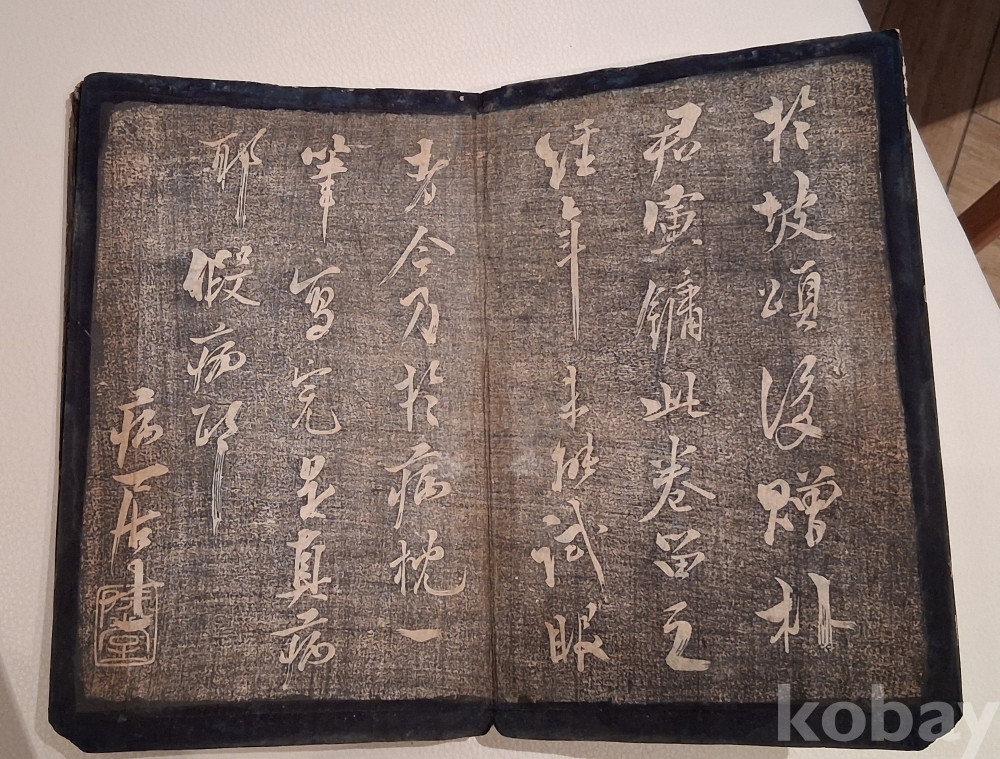 於坡頌後贈朴
君寅鏞此卷留之
經年未能試眼
者今乃於病枕一
筆寫完是真病
耶假病耶
病居士
kobay